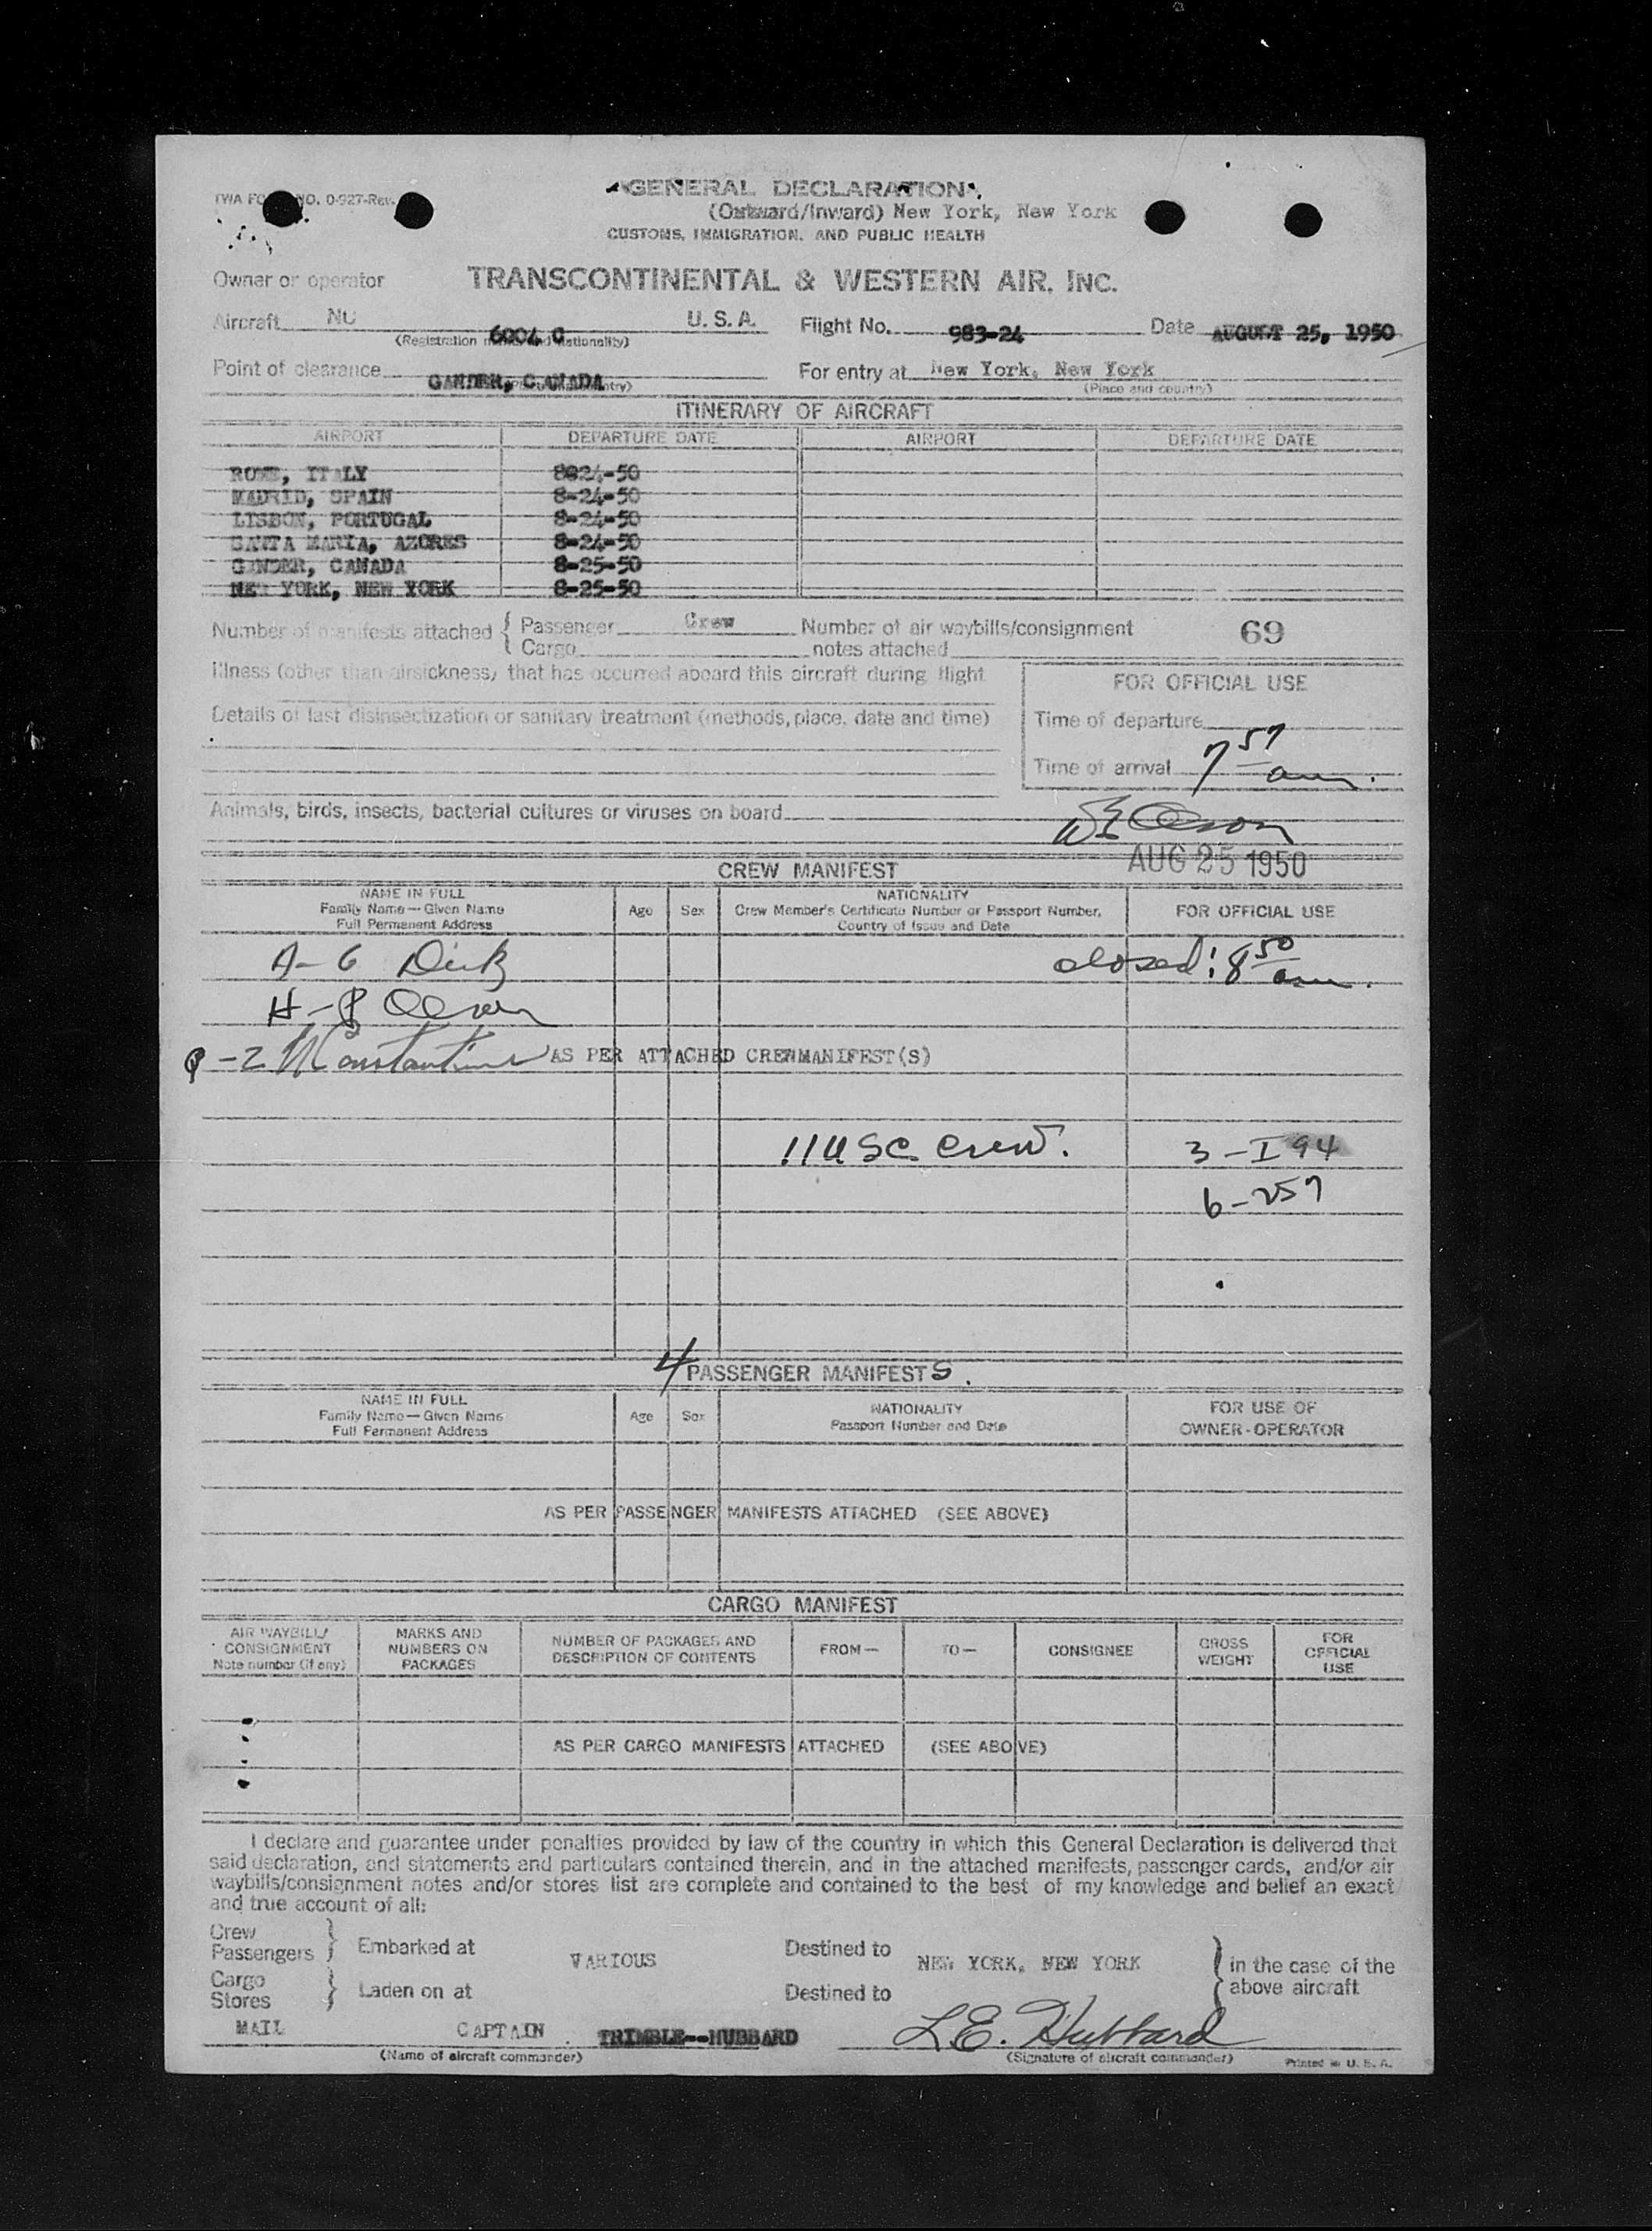 TWA FO NO. 0-927-Rev.
GENERAL DECLARATION
(Outward/Inward) New York, New York
CUSTOMS, IMMIGRATION, AND PUBLIC HEALTH
Owner or operator TRANSCONTINENTAL & WESTERN AIR, INC.
Aircraft NC 6004 C U. S. A. Flight No. 983-24 Date AUGUST 25, 1950
(Registration marks and nationality)
Point of clearance GANDER, CANADA For entry at New York, New York
(Place and country)
ITINERARY OF AIRCRAFT
AIRPORT DEPARTURE DATE AIRPORT DEPARTURE DATE
ROME, ITALY 8824-50
MADRID, SPAIN 8-24-50
LISBON, PORTUGAL 8-24-50
SANTA MARIA, AZORES 8-24-50
GANDER, CANADA 8-25-50
NEW YORK, NEW YORK 8-25-50
Number of manifests attached { Passenger Crew Number of air waybills/consignment 69
Cargo notes attached
Illness (other than airsickness) that has occurred aboard this aircraft during flight
FOR OFFICIAL USE
Details of last disinsectization or sanitary treatment (methods, place, date and time)
Time of departure
Time of arrival 7 57 am.
Animals, birds, insects, bacterial cultures or viruses on board
AUG 25 1950
CREW MANIFEST
NAME IN FULL
Family Name — Given Name
Full Permanent Address
Age Sex
NATIONALITY
Crew Member's Certificate Number or Passport Number,
Country of Issue and Date
FOR OFFICIAL USE
A-6 Dick closed: 8 50 am.
H-P Olson
Q-2 M Constantine AS PER ATTACHED CREWMANIFEST(S)
11 USC Crew. 3-I 94
6-257
4 PASSENGER MANIFESTS.
NAME IN FULL
Family Name — Given Name
Full Permanent Address
Age Sex
NATIONALITY
Passport Number and Date
FOR USE OF
OWNER-OPERATOR
AS PER PASSENGER MANIFESTS ATTACHED (SEE ABOVE)
CARGO MANIFEST
AIR WAYBILL/
CONSIGNMENT
Note number (if any)
MARKS AND
NUMBERS ON
PACKAGES
NUMBER OF PACKAGES AND
DESCRIPTION OF CONTENTS
FROM —
TO —
CONSIGNEE
GROSS
WEIGHT
FOR
OFFICIAL
USE
AS PER CARGO MANIFESTS ATTACHED (SEE ABOVE)
I declare and guarantee under penalties provided by law of the country in which this General Declaration is delivered that
said declaration, and statements and particulars contained therein, and in the attached manifests, passenger cards, and/or air
waybills/consignment notes and/or stores list are complete and contained to the best of my knowledge and belief an exact
and true account of all:
Crew
Passengers } Embarked at VARIOUS Destined to NEW YORK, NEW YORK } in the case of the
Cargo
Stores } Laden on at Destined to above aircraft
MAIL CAPTAIN TRIMBLE--HUBBARD L.E. Hubbard
(Name of aircraft commander) (Signature of aircraft commander) Printed in U. S. A.